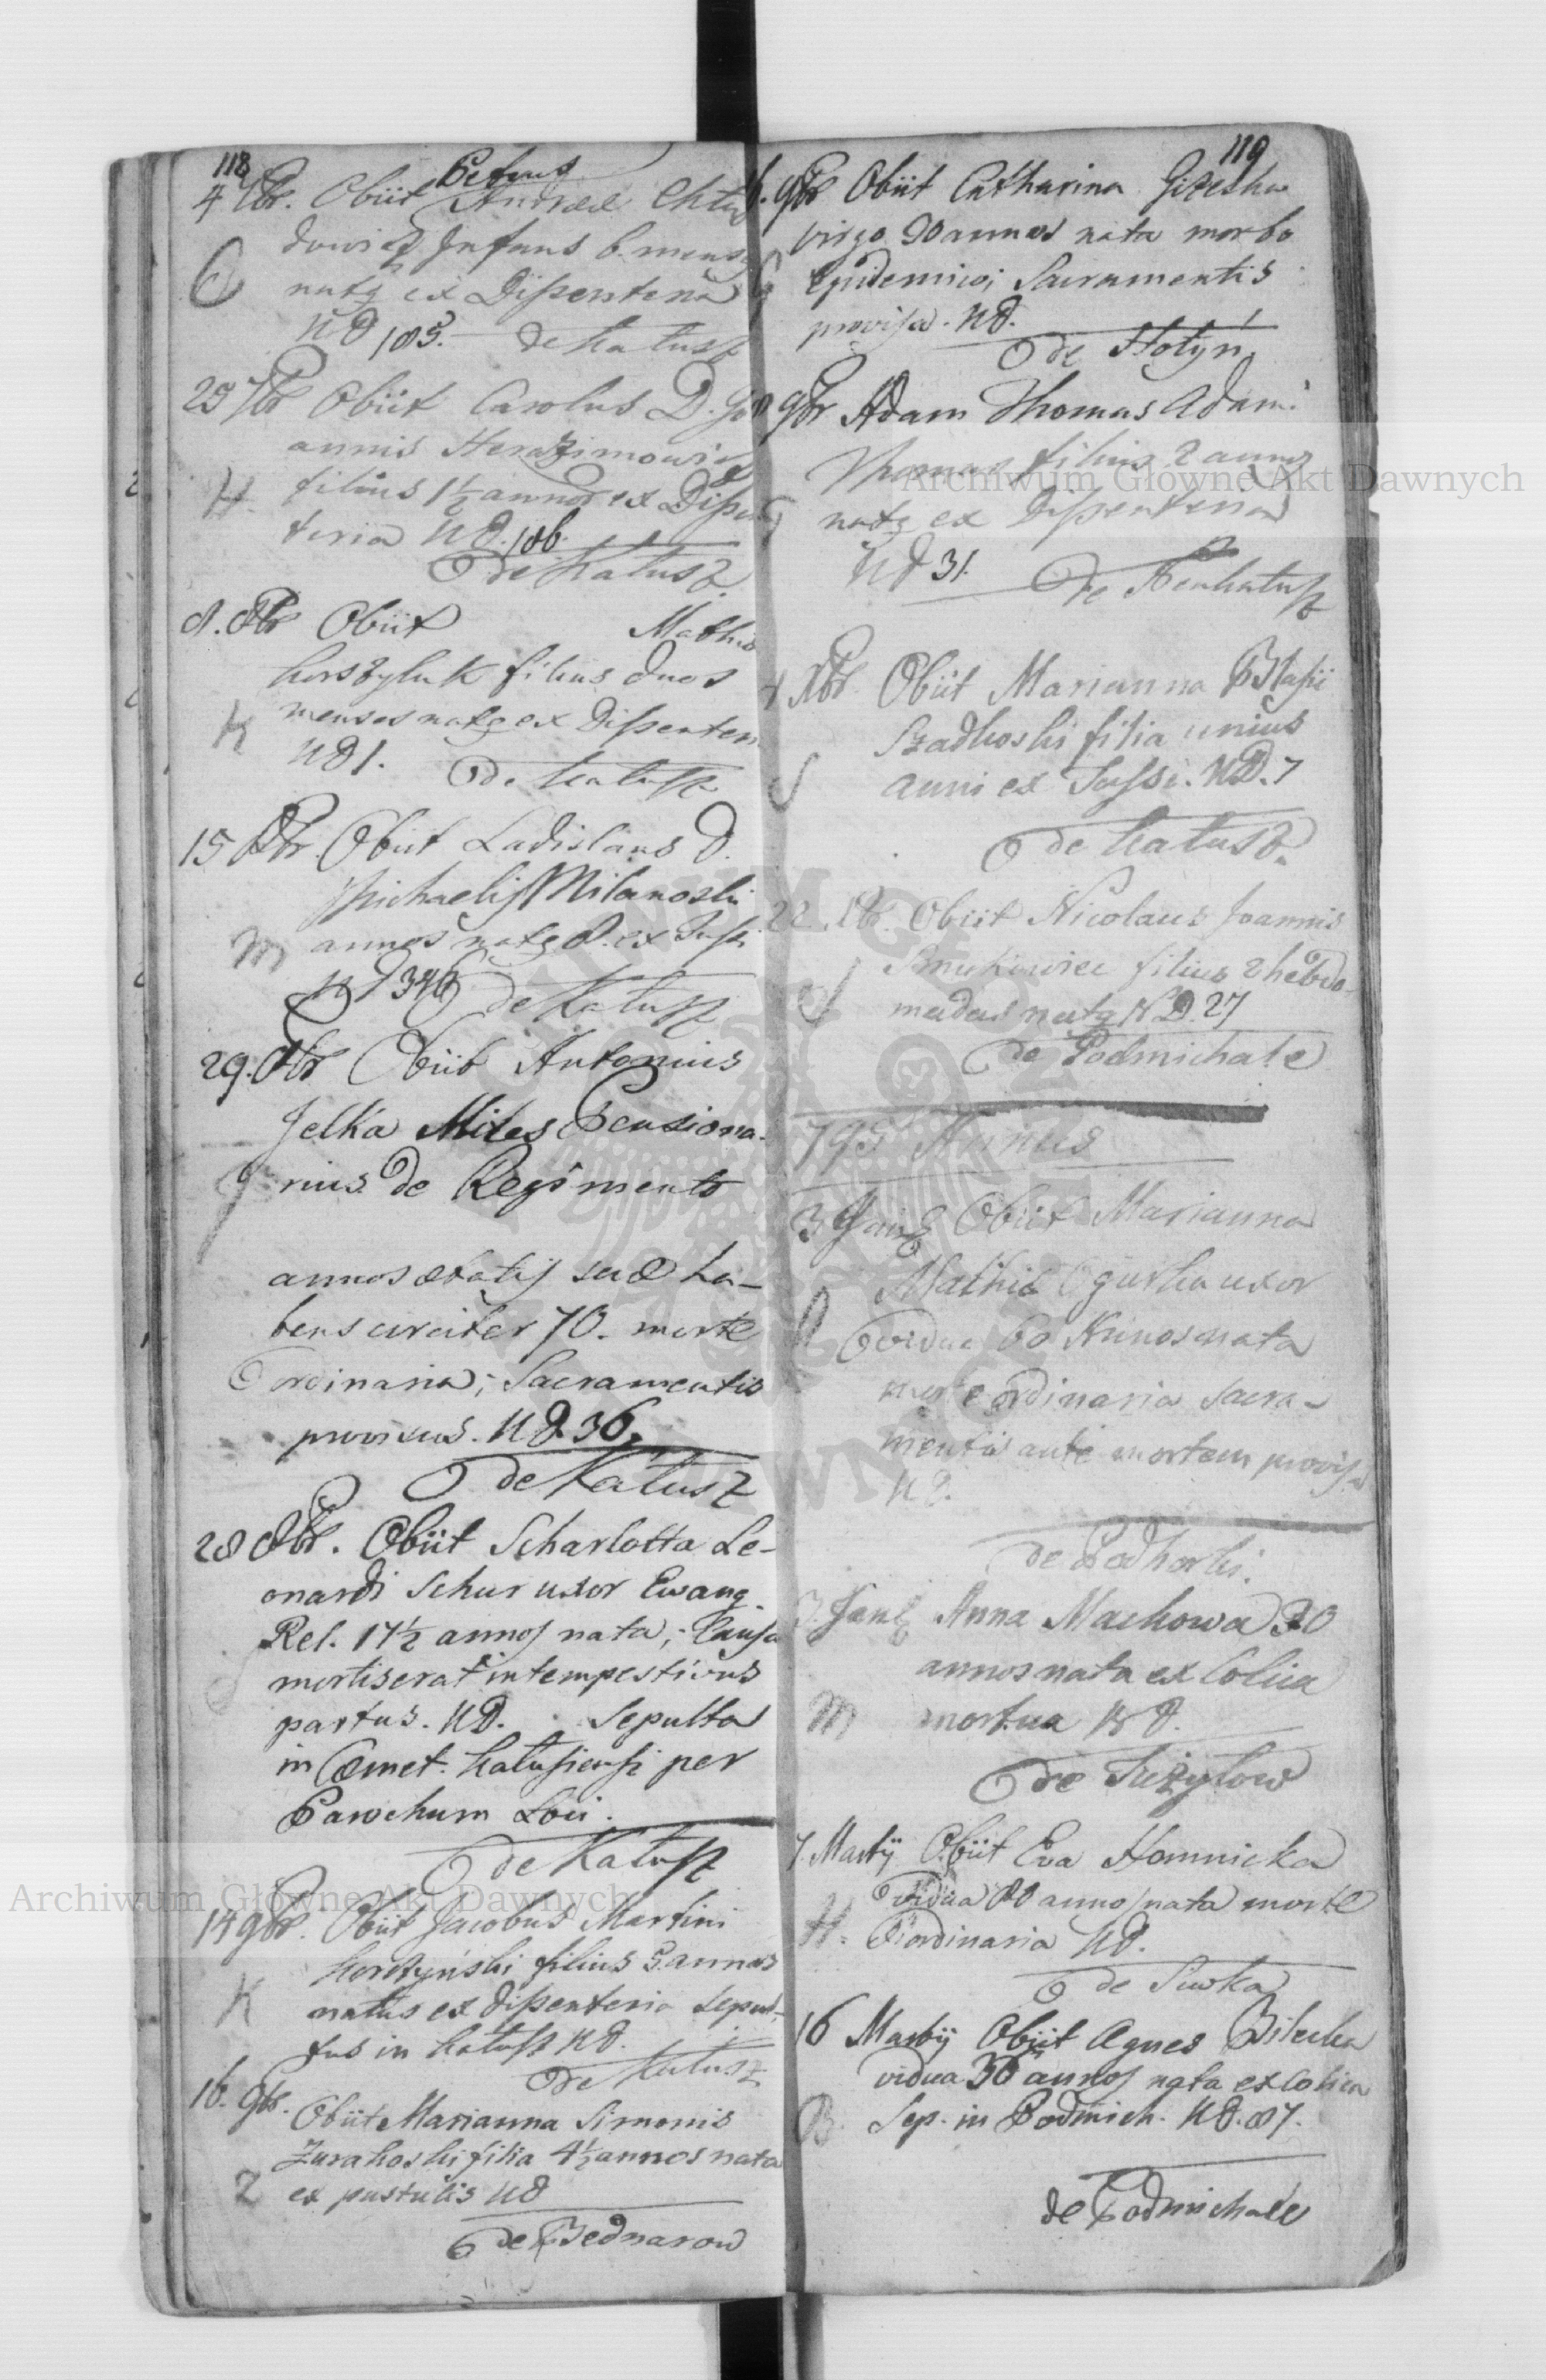 118
4 7br. Obiit Petrus Andreae Chlu
dowicz Infans 6. mens
C
natq ex Dissenteria
ND 105.
de Kałusz
25 7br Obiit Carolus D. Jo
annis Herazimowicz
H.
filius 1½ annor ex Disse
teria ND. 106.
de Kałusz
8. 8br Obiit Mathi
Korszyluk filius duos
menses natq ex Dissenter
K
ND 1.
de Kałusz
15 8br. Obiit Ladislaus D.
Michaelis Milanoski
M
annos natq 8. ex Tussi
ND 346
de Kałusz
29. 8br Obiit Antonius
Jelka Miles Pensiona-
J
rius de Regimento
annos aetatis suae ha-
bens circiter 70. morte
ordinaria; Sacramentis
provisus. ND 36.
de Kałusz
28 8br. Obiit Scharlotta Le-
onardi Schur uxor Ewang.
Rel. 17½ annos nata; Causa
mortis erat intempestivus
S
partus. ND. Sepulta
in Cœmet. Kalusiensi per
Parochum Loci.
de Kałusz
14 9br. Obiit Jacobus Martini
Korczyński filius 5. annos
K
natus ex Dissenteria Sepul-
tus in Kałusz ND.
de Kałusz
16. 9br. Obiit Marianna Simonis
Zurakoski filia 4½ annos nata
Z
ex pustulis ND
de Bednarow
119
9br Obiit Catharina Gizelka
virgo 20 annos nata morbo
G
Epidemico; Sacramentis
provisa. ND.
de Hołyń
9br Adam Thomas Adami
Thomas filius 2 annos
natq ex Dissenteria
ND 31.
de Neukałusz
Xbr. Obiit Marianna Blasii
Szadkoski filia unius
S
anni ex Tussi. ND. 7
de Kałusz.
22. Xbr. Obiit Nicolaus Joannis
Smukowiec filius 2 hebdo-
S
madas natq ND. 27
de Podmichale
795 Annus
3 Januarii Obiit Marianna
Mathiae Ogurka uxor
vidua 60 Annos nata
morte ordinaria Sacra-
mentis ante mortem provisa
ND.
de Podhorki.
3. Januarii Anna Machowa 30
annos nata ex Colica
M
mortua ND.
de Siężyłow
7. Martii Obiit Eva Homnicka
vidua 80 annos nata morte
H.
ordinaria ND.
de Siwka
16 Martii Obiit Agnes Bilecka
vidua 36 annos nata ex Colica
B.
Sep. in Podmich. ND. 87.
de Podmichale
Archiwum Główne Akt Dawnych
Archiwum Główne Akt Dawnych